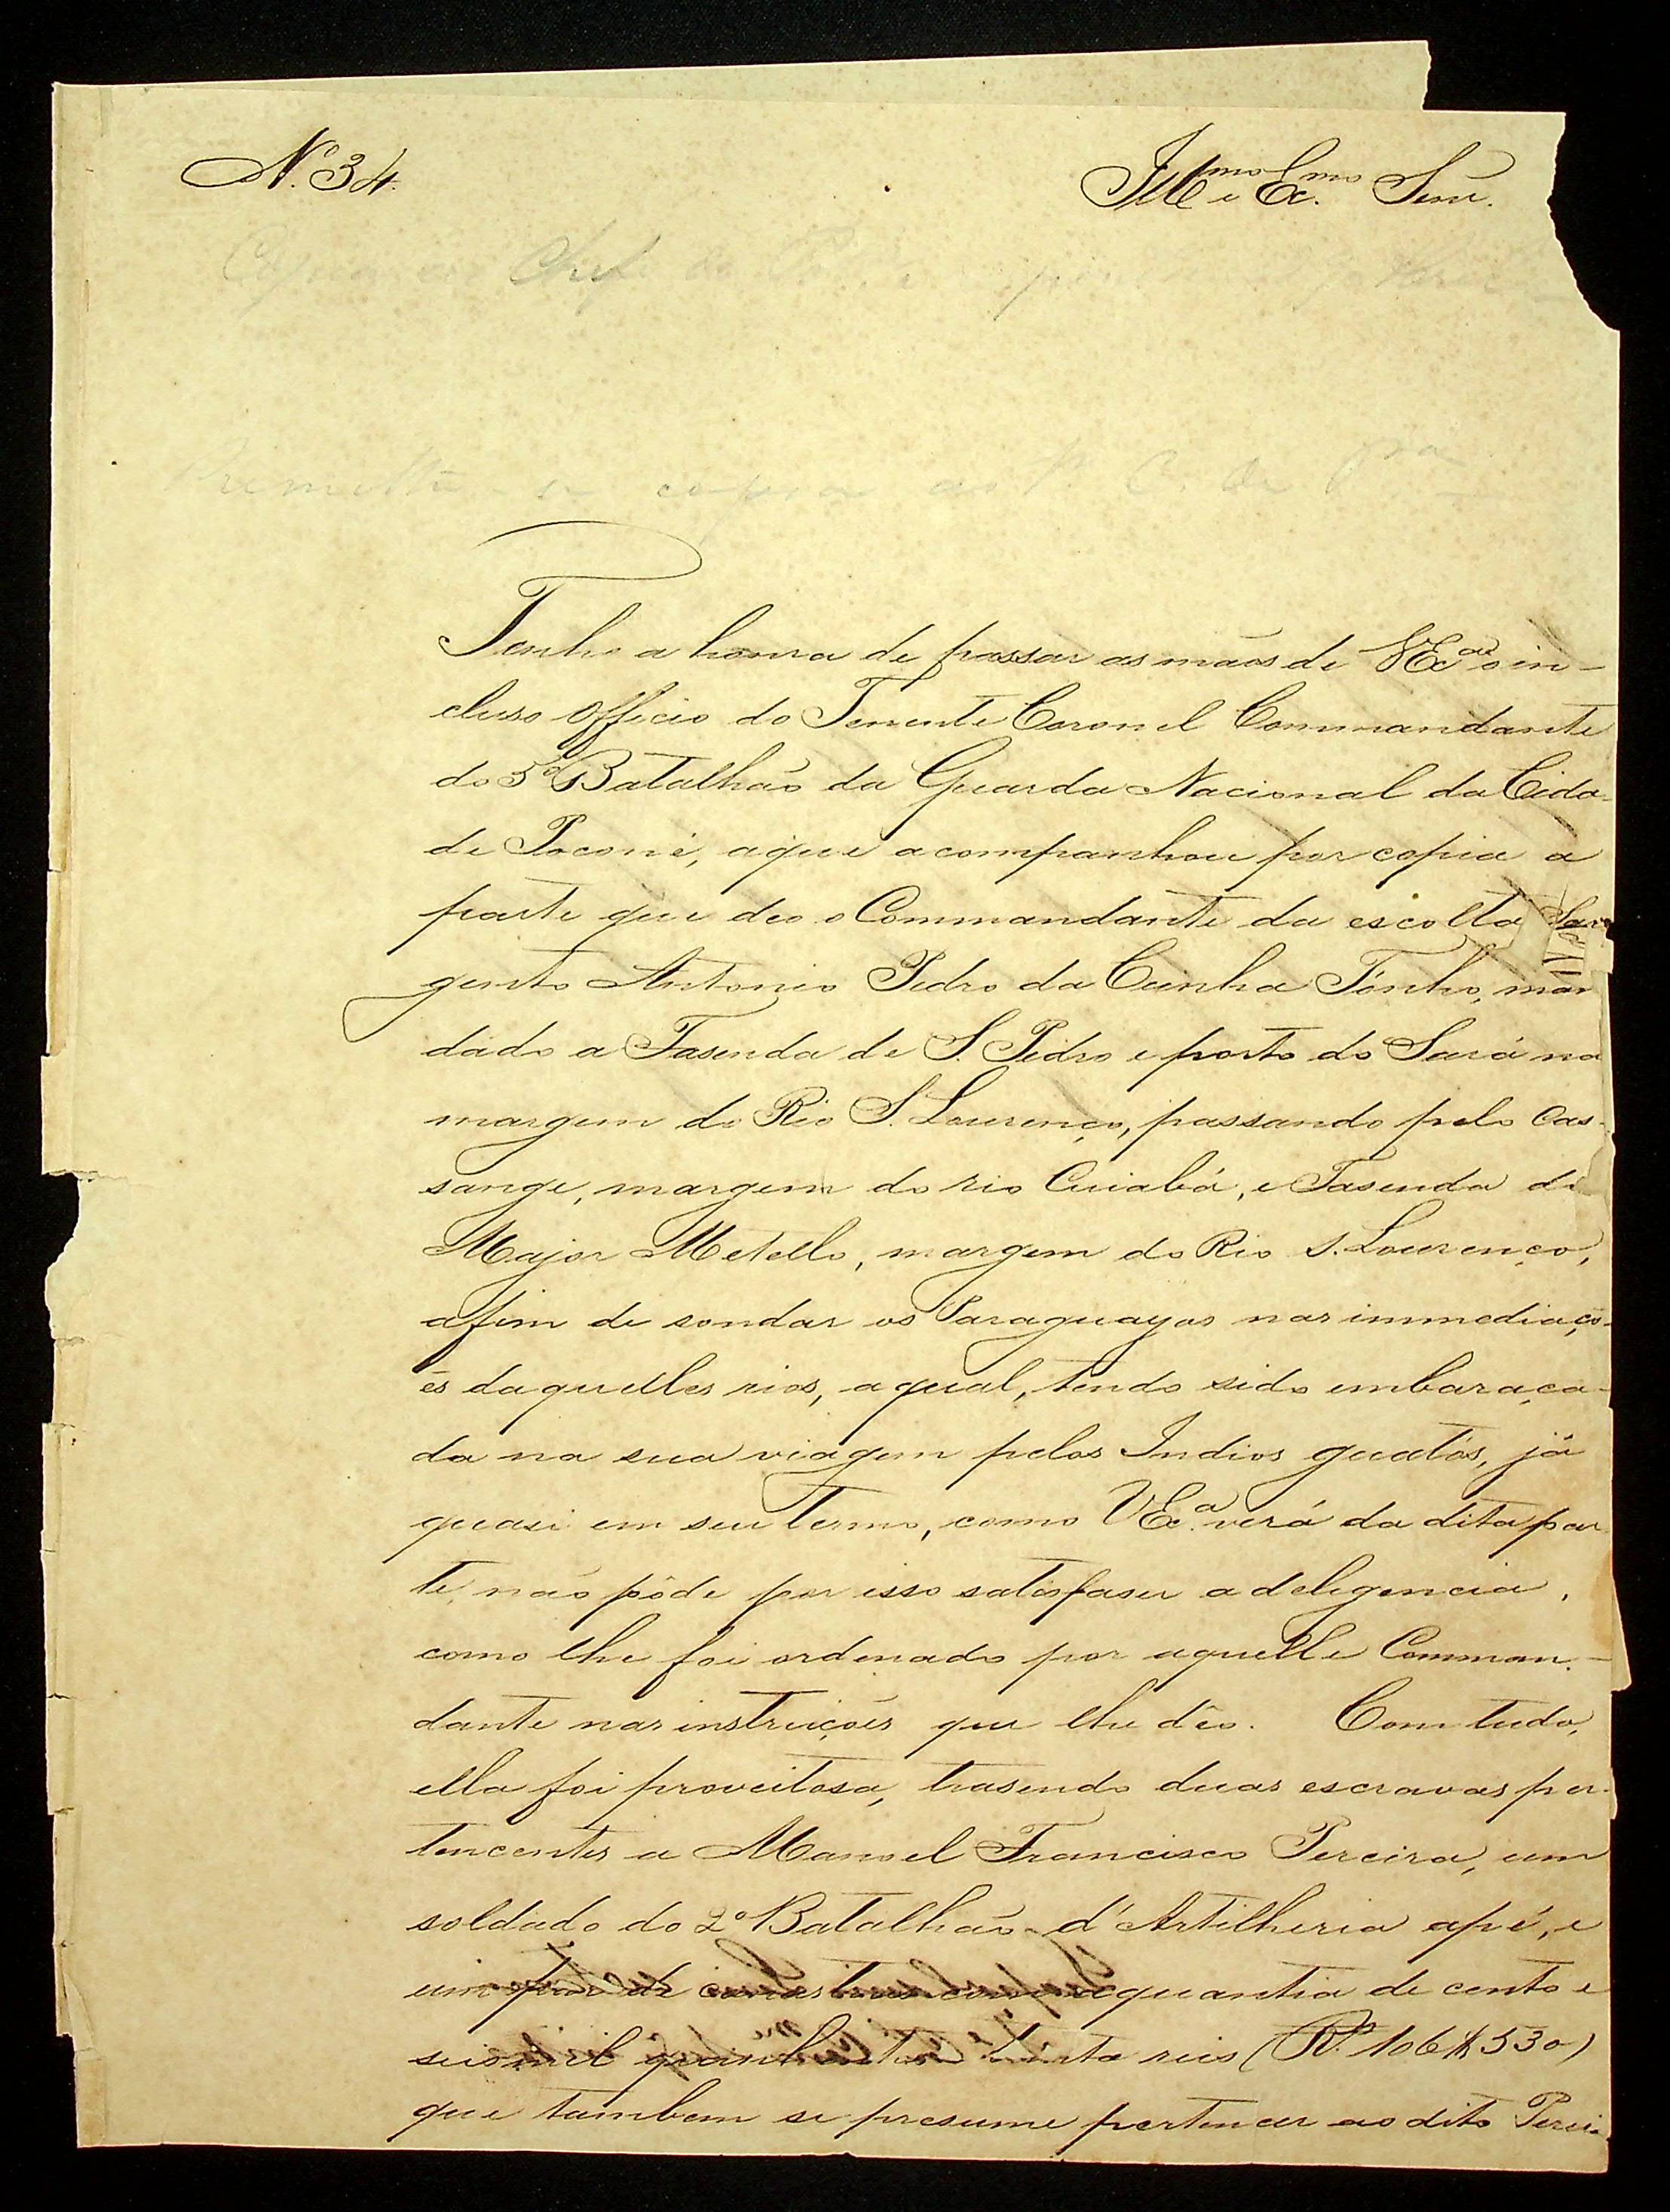 N.º 34.
Ill.mo e Ex.mo Senr.
Copia ao Chefe de
Remetta-se copia ao C. de
Tenho a honra de passar as mãos de VEx.as o in-
cluso officio do Tenente Coronel Commandante
do 5º Batalhão da Guarda Nacional da Cida-
de Poconé, aque acompanhou por copia a
parte que deo o Commandante da escolta Sar
gento Antonio Pedro da Cunha Tônho, man
dado a Fasenda de S. Pedro e porto do Sará na
margem do Rio S. Lourenço, passando pelo Cas-
sange, margem do rio Cuiabá, e Fasenda do
Major Metello, margem do Rio S. Lourenço,
afim de sondar os Paraguayos nas immediaçõ-
es daquelles rios, aqual, tendo sido embaraça-
da na sua viagem pelos Indios guatós, já
quasi em seu termo, como VEx.a verá da dita par
te, não pôde por isso satisfaser a deligencia,
como lhe foi ordenado por aquelle Comman-
dante nas instruições que lhe dêo. Com tudo,
ella foi proveitosa, trasendo duas escravas per-
tencentes a Manoel Francisco Pereira, um
soldado do 2º Batalhão d'Artilheria apé, e
um par de canastras com a quantia de cento e
seis mil quinhentos trinta reis (R.s 106$530)
que tambem se presume pertencer ao dito Perei-